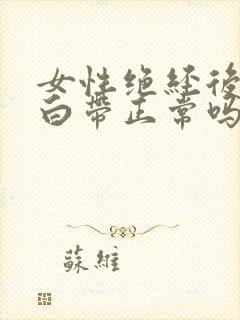 女性绝经後
白带正常吗
蘇維